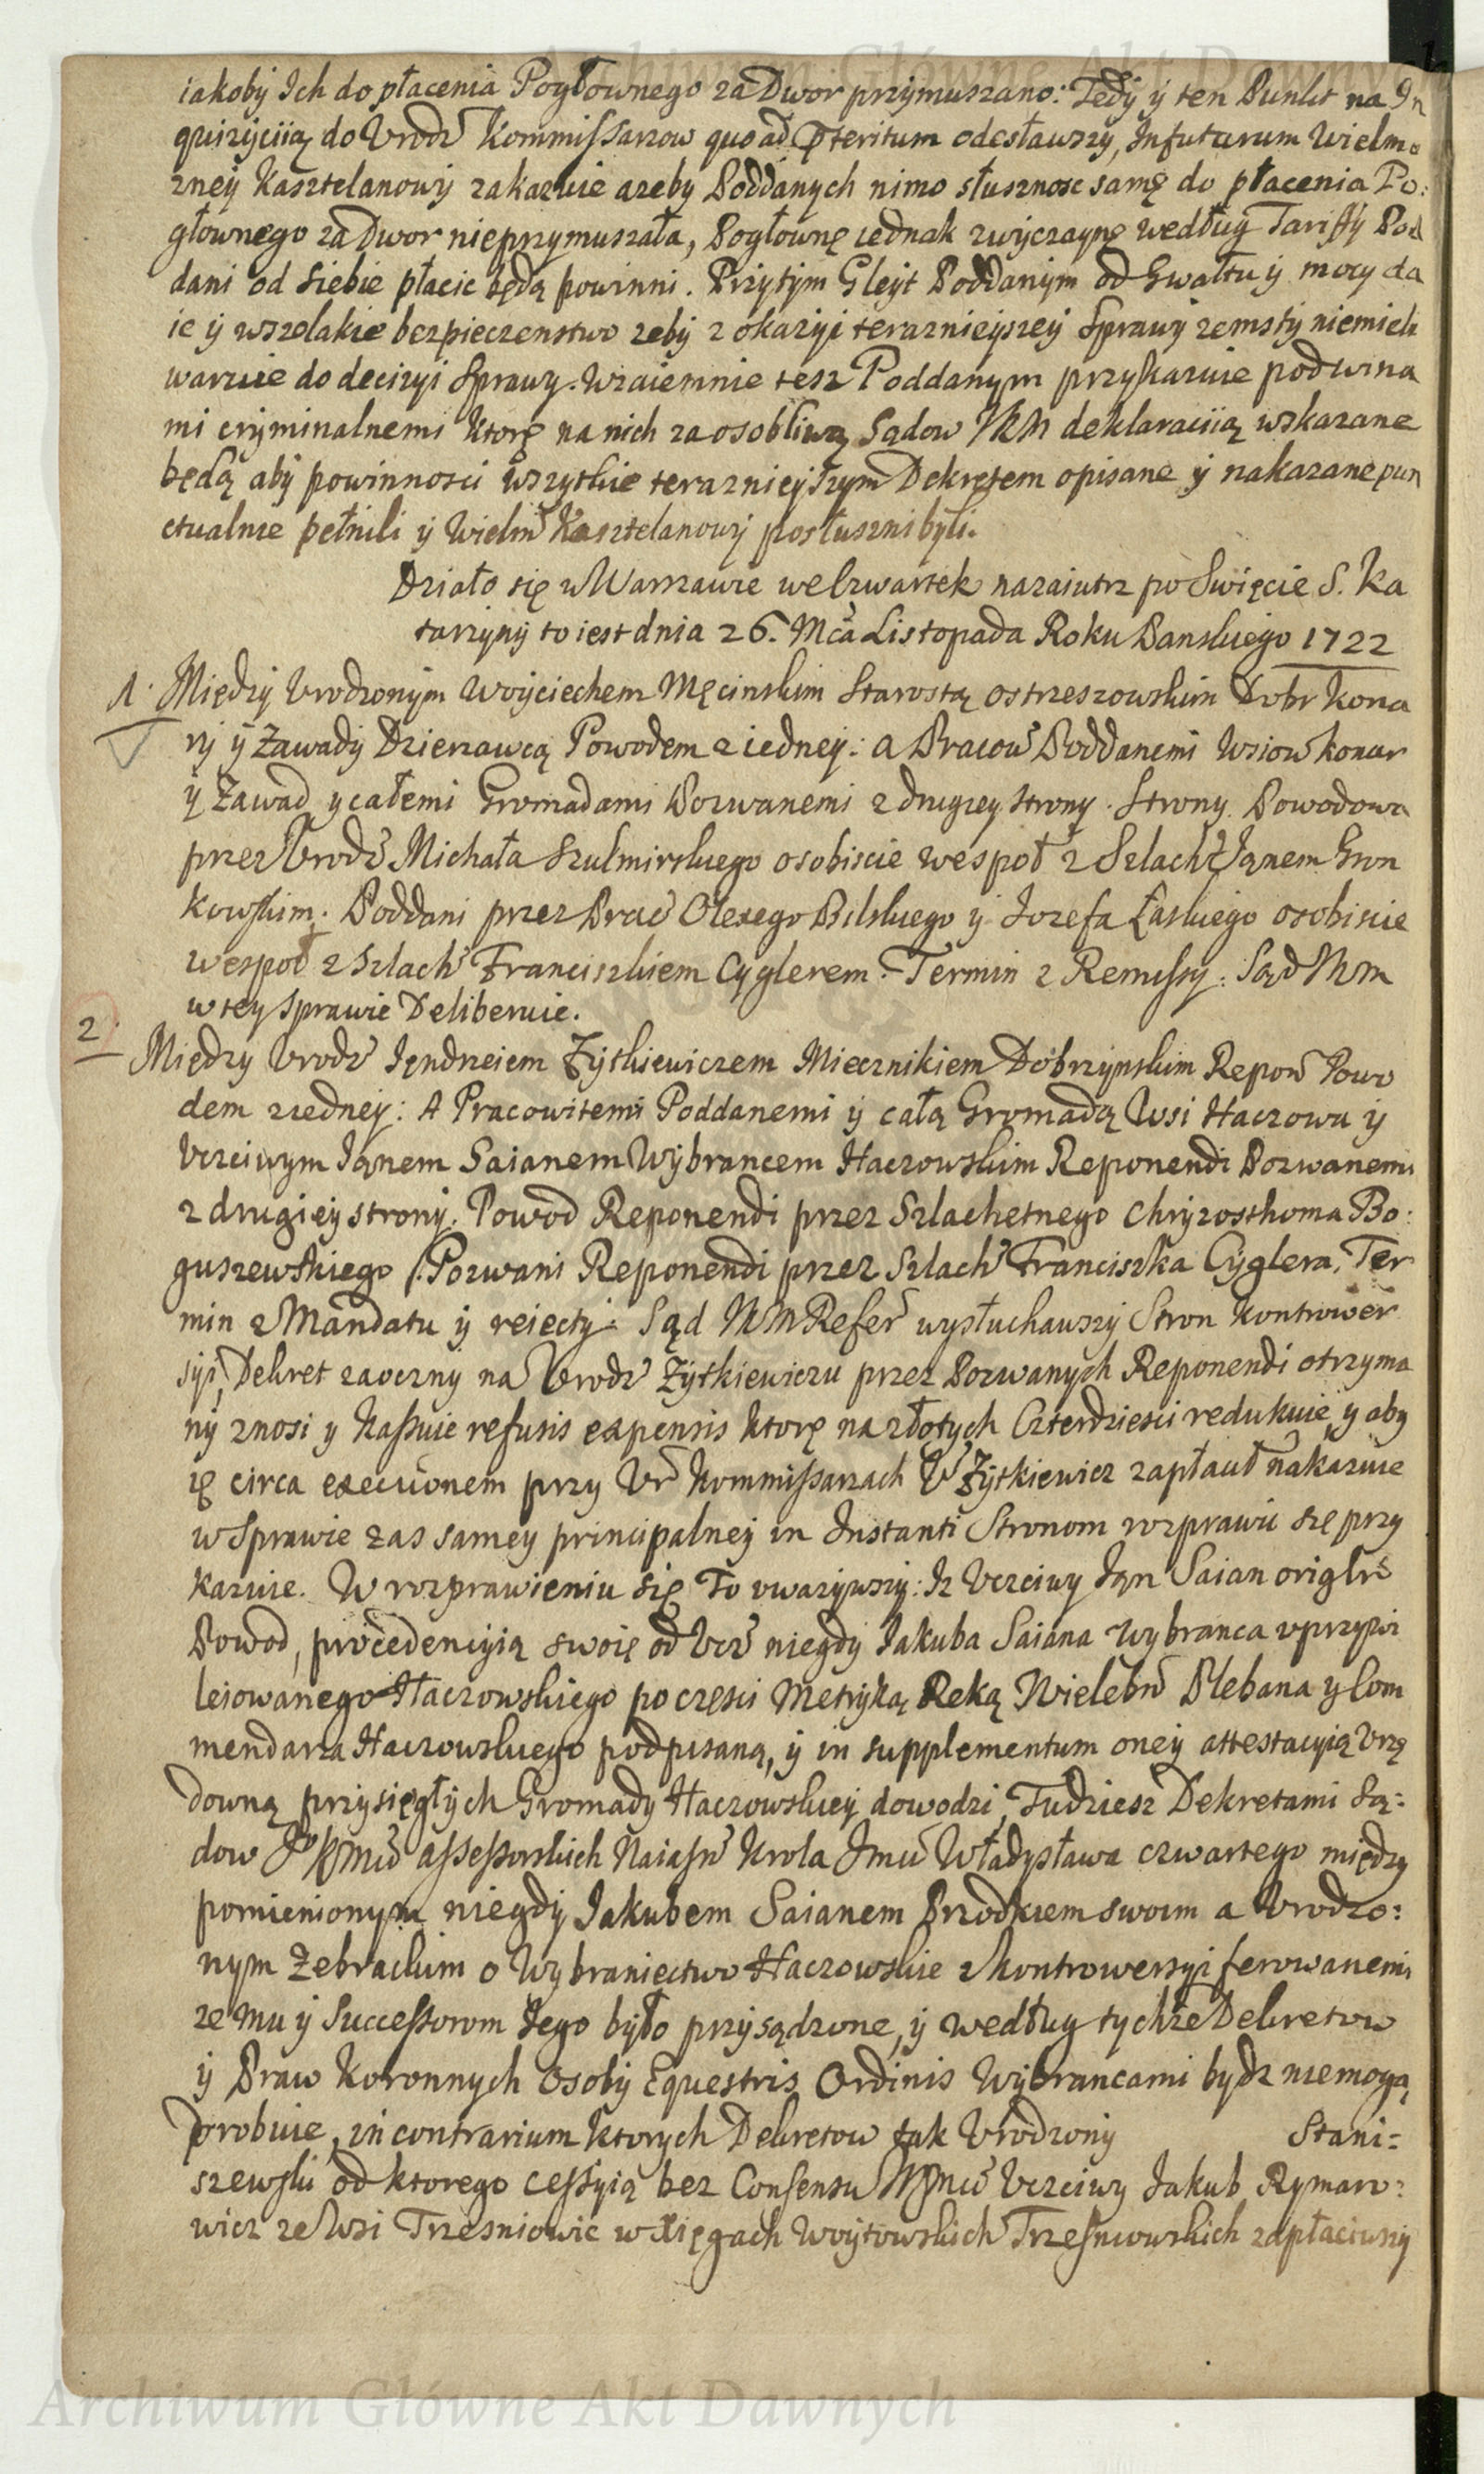 iakoby Ich do płacenia Pogłownego za Dwor przymuszano: Tedy y ten Punkt na In
quizyciią do Vrodz Kommissarzow quo ad Pteritum odesławszy, In futurum Wielmo
zney Kasztelanowy zakazuie azeby Poddanych nimo słusznosc samę do płacenia Po:
głownego za Dwor nieprzymuszała, Pogłownę iednak zwyczaynę według Tariffy Pod
dani od siebie płacic będą powinni. Przytym Gleyt Poddanym od Gwałtu y mocy da
ie y wszelakie bezpieczenstwo zeby z okazyi terazniejszey Sprawy zemsty niemieli
waruie do decizyi Sprawy. Wzaiemnie tesz Poddanym przykazuie pod wina
mi cryminalnemi ktorę na nich za osobliwą Sądow JKM deklaraciią wskazane
będą aby powinnosci wszytkie terazniejszym Dekretem opisane y nakazane pun
ctualnie pełnili y Wielm Kasztelanowy posłuszni byli.
Działo się w Warszawie we Czwartek nazaiutrz po Swięcie S. Ka
tarzyny to iest dnia 26. Mca Listopada Roku Panskiego 1722
1. Między Vrodzonym Woyciechem Męcinskim Starostą ostrzeszowskim Dobr Kona
ry y Zawady Dzierzawcą Powodem z iedney: a Pracow Poddanemi Wsiow Konar
y Zawad y całemi Gromadami Pozwanemi z drugiey strony. Strony Powodowa
przez Vrodz Michała Szulmirskiego osobiscie wespoł z Szlach Janem Gron
kowskim; Poddani przez Prac Olexego Bilskiego y Jozefa Łaskiego osobiscie
wespoł z Szlach Franciszkiem Cyglerem. Termin z Remissy: Sąd JKM
w tey Sprawie Deliberuie.
2 Między Vrodz Jędrzeiem Zytkiewiczem Miecznikiem Dobrzynskim Repon Powo
dem z iedney: A Pracowitemi Poddanemi y całą Gromadą Wsi Haczowa y
Vczciwym Janem Saianem Wybrancem Haczowskim Reponendi Pozwanemi
z drugiey strony. Powod Reponendi przez Szlachetnego Chryzosthoma Bo:
guszewskiego /. Pozwani Reponendi przez Szlach Franciszka Cyglera. Ter
min z Mandatu y reiecty: Sąd JKM Refer wysłuchawszy Stron Kontrower
syi, Dekret zaoczny na Vrodz Zytkiewiczu przez Pozwanych Reponendi otrzyma
ny znosi y Kassuie refusis expensis ktorę na złotych Czterdziesci redukuie y aby
ię circa executionem przy Vr Kommissarzach V Zytkiewicz zapłacił nakazuie
w Sprawie zas samey principalney in Instanti Stronom rozprawic się przy
kazuie. W rozprawieniu się To vwazywszy: Iz Vczciwy Jan Saian origlns
Powod, procedencyią swoię od Vcz niegdy Jakuba Saiana Wybranca vprzywi
leiowanego Haczowskiego po częsci Metryką Reką Wielebn Plebana y Com
mendarza Haczowskiego podpisaną, y in supplementum oney attestacyią Vrzę
downą przysięgłych Gromady Haczowskiey dowodzi, Tudziesz Dekretami Są:
dow JoKMci Assessorskich Naiasn Krola Jmci Władysława czwartego między
pomienionym niegdy Jakubem Saianem Przodkiem swoim a Vrodzo:
nym Zebrackim o Wybraniectwo Haczowskie z Kontrowersyi ferowanemi
ze mu y Successorom Jego było przysądzone, y według tychze Dekretow
y Praw Koronnych Osoby Equestris Ordinis Wybrancami bydz niemogą
probuie, in contrarium ktorych Dekretow tak Vrodzony Stani=
szewski od ktorego cessyią bez Consensu JKMci Vczciwy Jakub Rymaro:
wicz ze Wsi Trzesniowic w Xięgach Woytowskich Trzesniowskich zapłaciwszy
Archiwum Główne Akt Dawnych